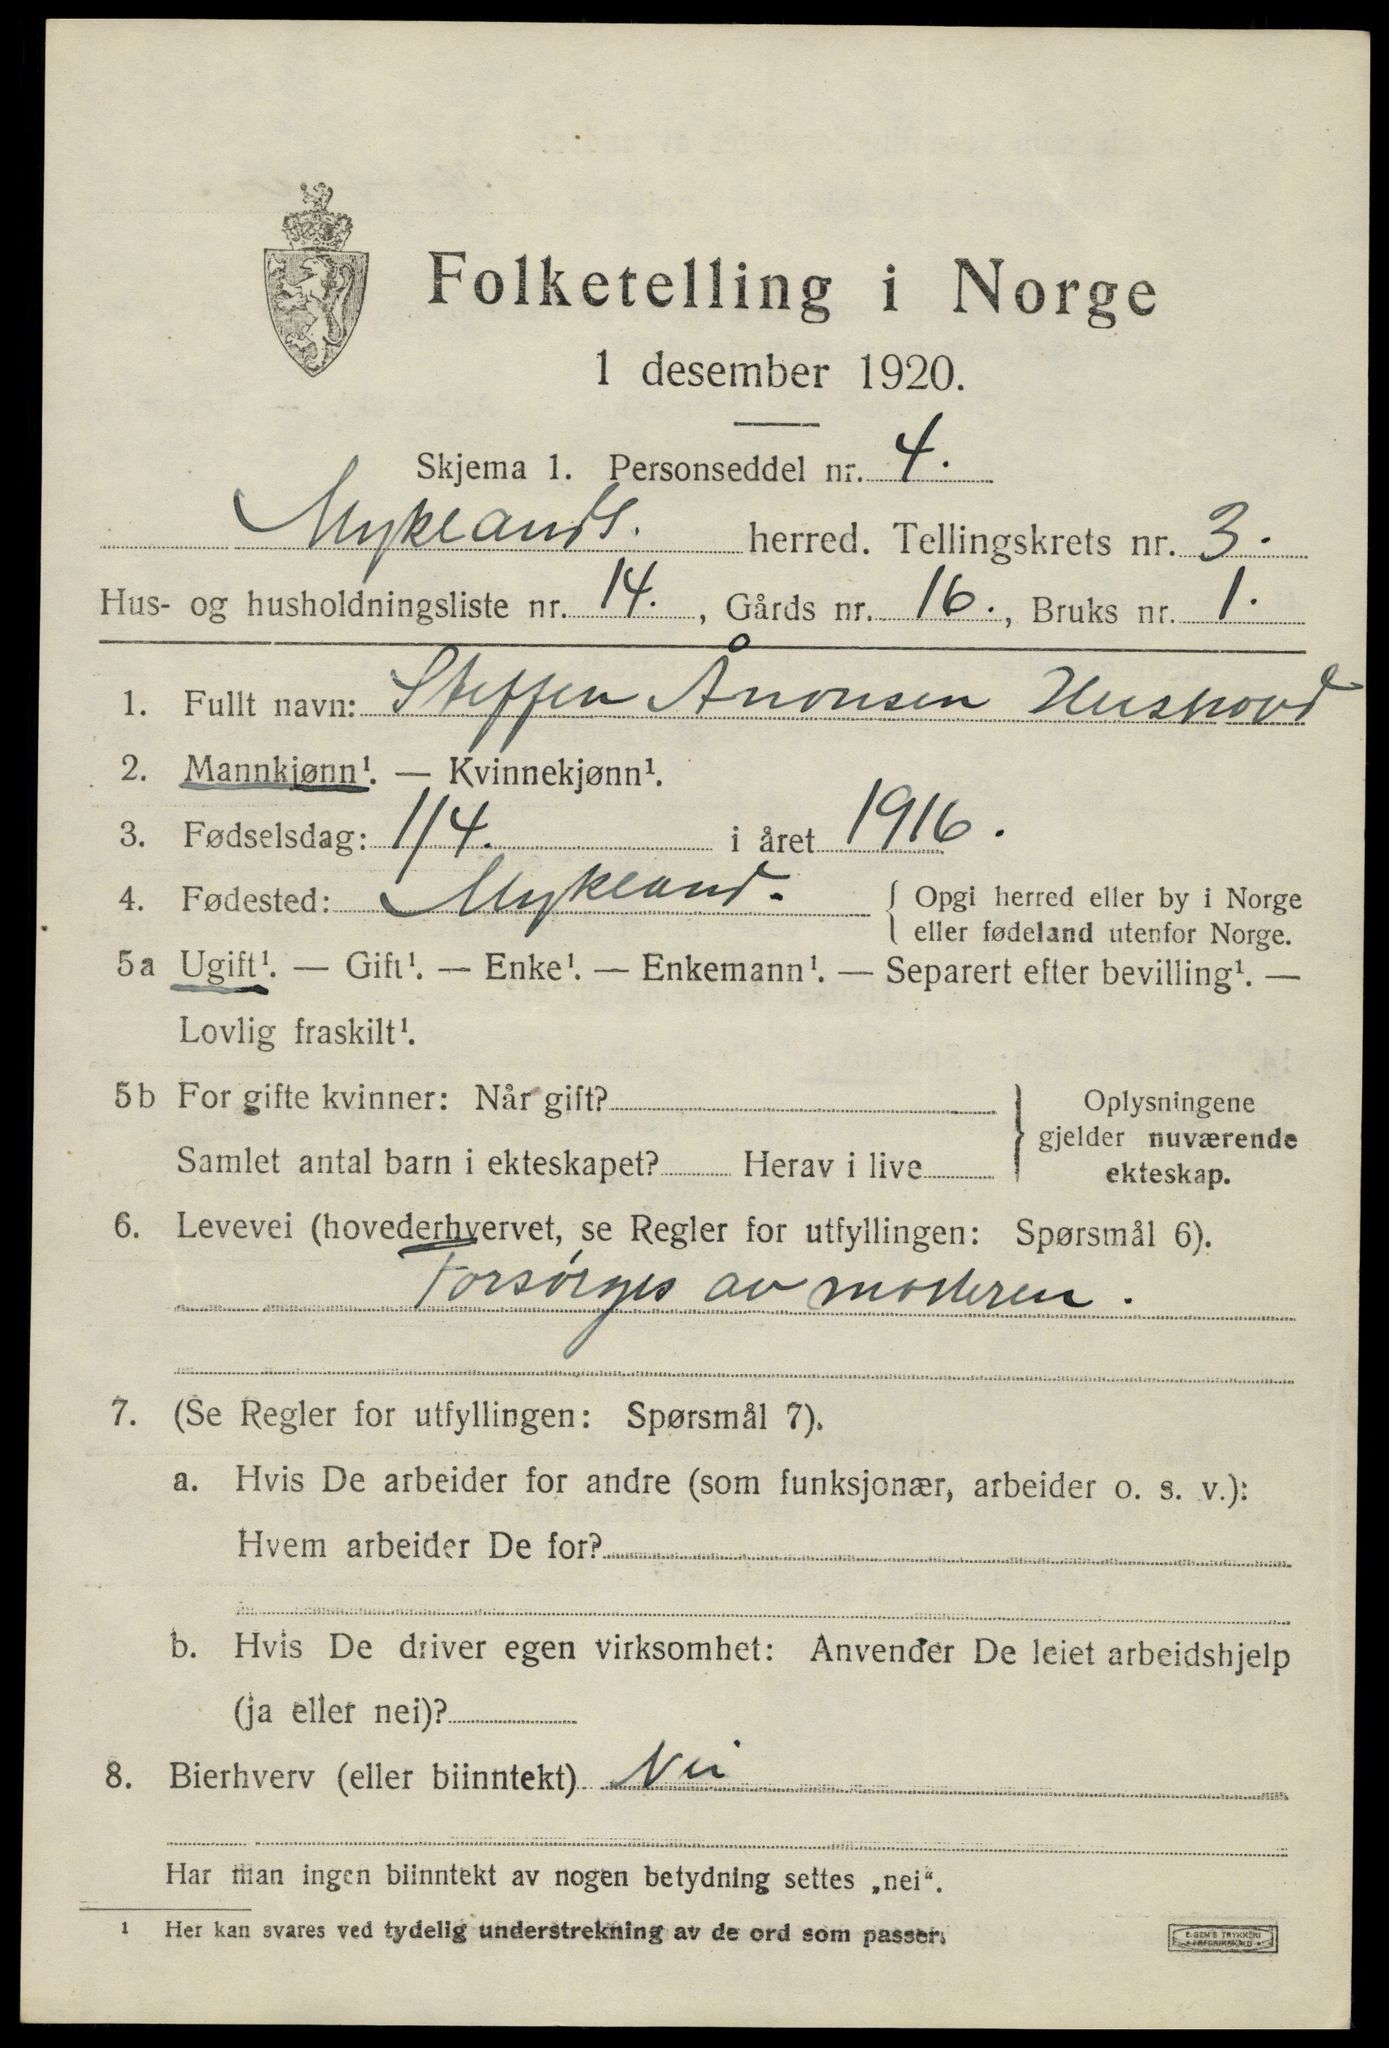 Folketelling i Norge
1 desember 1920.
Skjema 1. Personseddel nr. 4.
Myklands. herred. Tellingskrets nr. 3.
Hus- og husholdningsliste nr. 14. , Gårds nr. 16. , Bruks nr. 1.
1. Fullt navn: Steffen Ånonsen Hushovd
2. Mannkjønn¹. — Kvinnekjønn¹.
3. Fødselsdag: 1/4. i året 1916.
4. Fødested: Mykland. { Opgi herred eller by i Norge
eller fødeland utenfor Norge.
5a Ugift¹. — Gift¹. — Enke¹. — Enkemann¹. — Separert efter bevilling¹. —
Lovlig fraskilt¹.
5b For gifte kvinner: Når gift? } Oplysningene
gjelder nuværende
Samlet antal barn i ekteskapet? Herav i live
ekteskap.
6. Levevei (hovederhvervet, se Regler for utfyllingen: Spørsmål 6).
Forsørges av moderen.
7. (Se Regler for utfyllingen: Spørsmål 7).
a. Hvis De arbeider for andre (som funksjonær, arbeider o. s. v.):
Hvem arbeider De for?
b. Hvis De driver egen virksomhet: Anvender De leiet arbeidshjelp
(ja eller nei)?
8. Bierhverv (eller biinntekt) Nei
Har man ingen biinntekt av nogen betydning settes „nei“.
¹ Her kan svares ved tydelig understrekning av de ord som passer.
E. SEM'S TRYKKERI
FREDRIKSHALD